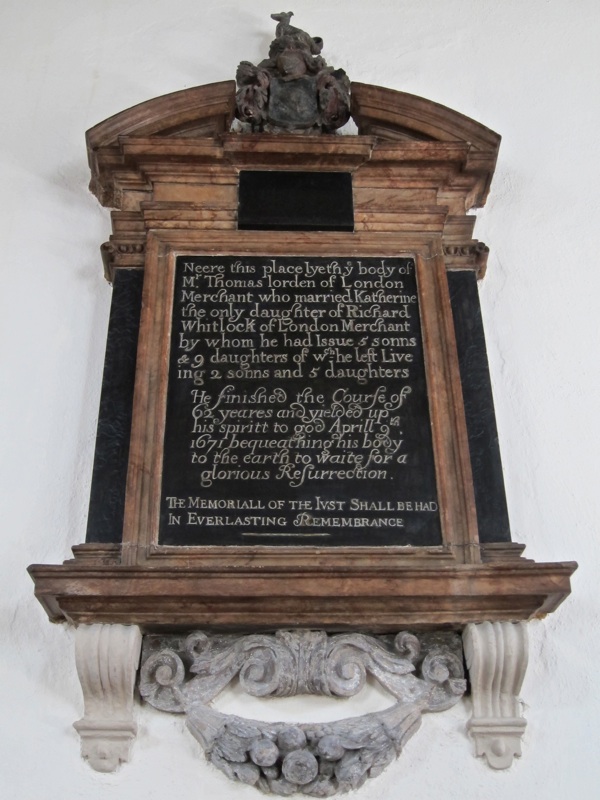 Neere this place lyeth yᵉ body of
Mʳ Thomas lorden of London
Merchant, who married Katherine
the only daughter of Richard
Whitlock of London Merchant
by whom he had Issue 5 sonns
& 9 daughters of wᶜʰ he left Live
ing 2 sonns and 5 daughters
He finished the Courſe of
62 yeares and yielded up
his spiritt to god Aprill 9ᵗʰ.
1671 bequeathing his body
to the earth to waite for a
glorious Reſurrection.
THE MEMORIALL OF THE IVST SHALL BE HAD
IN EVERLASTING REMEMBRANCE